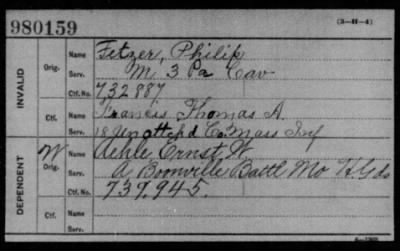 980159
(3—H—4)
INVALID
Orig.
Name Fetzer, Philip
Serv. M 3 Pa Cav
Ctf. No. 732887
Ctf.
Name Francis Thomas A.
Serv. 18 Unattchd Co Mass Inf
DEPENDENT
W Orig.
Name Aehle, Ernst W.
Serv. A Boonville Battl Mo H Gds
Ctf. No. 739,945.
Ctf.
Name
Serv.